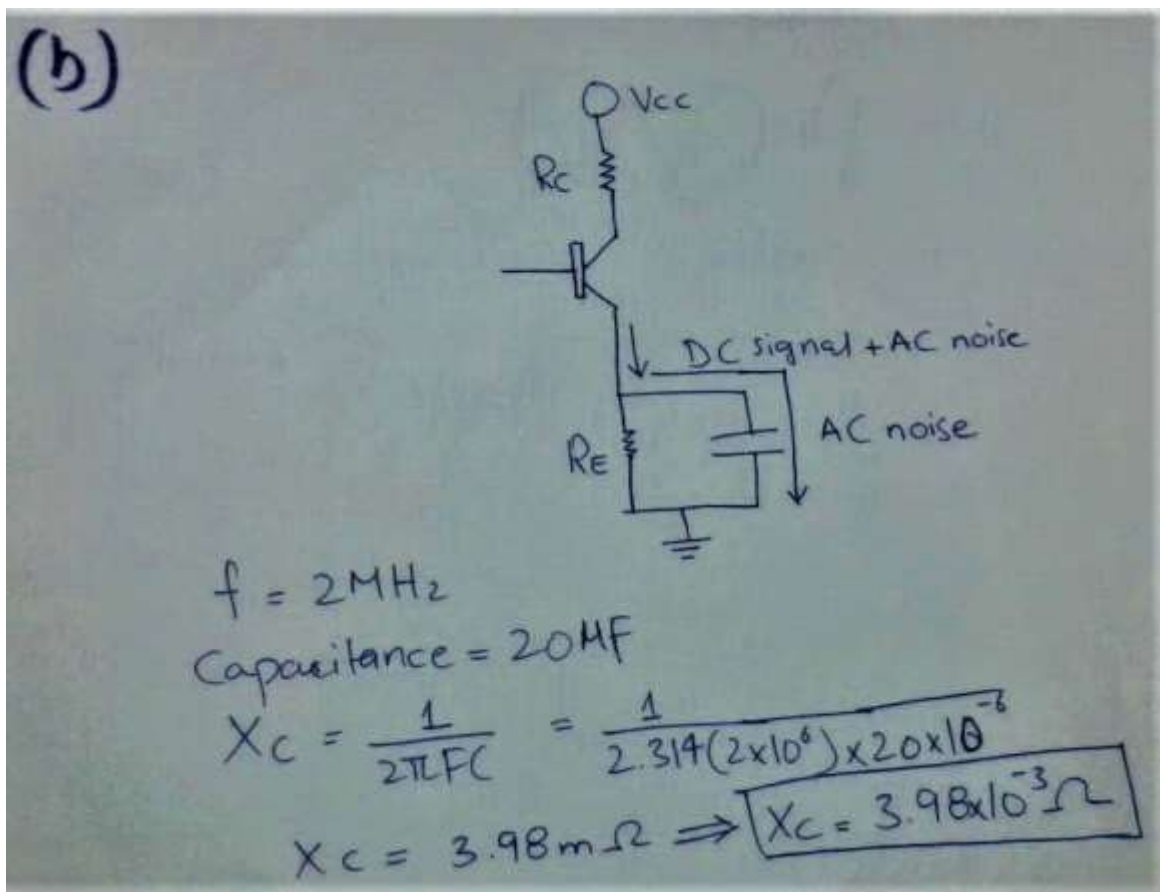 (b)
Vcc
Rc
DC signal + AC noise
AC noise
RE
f = 2MHz
Capacitance = 20MF
Xc = 1/2πFC = 1/2.314(2x10⁶)x20x10⁻⁶
Xc = 3.98mΩ ⇒ Xc = 3.98x10⁻³Ω